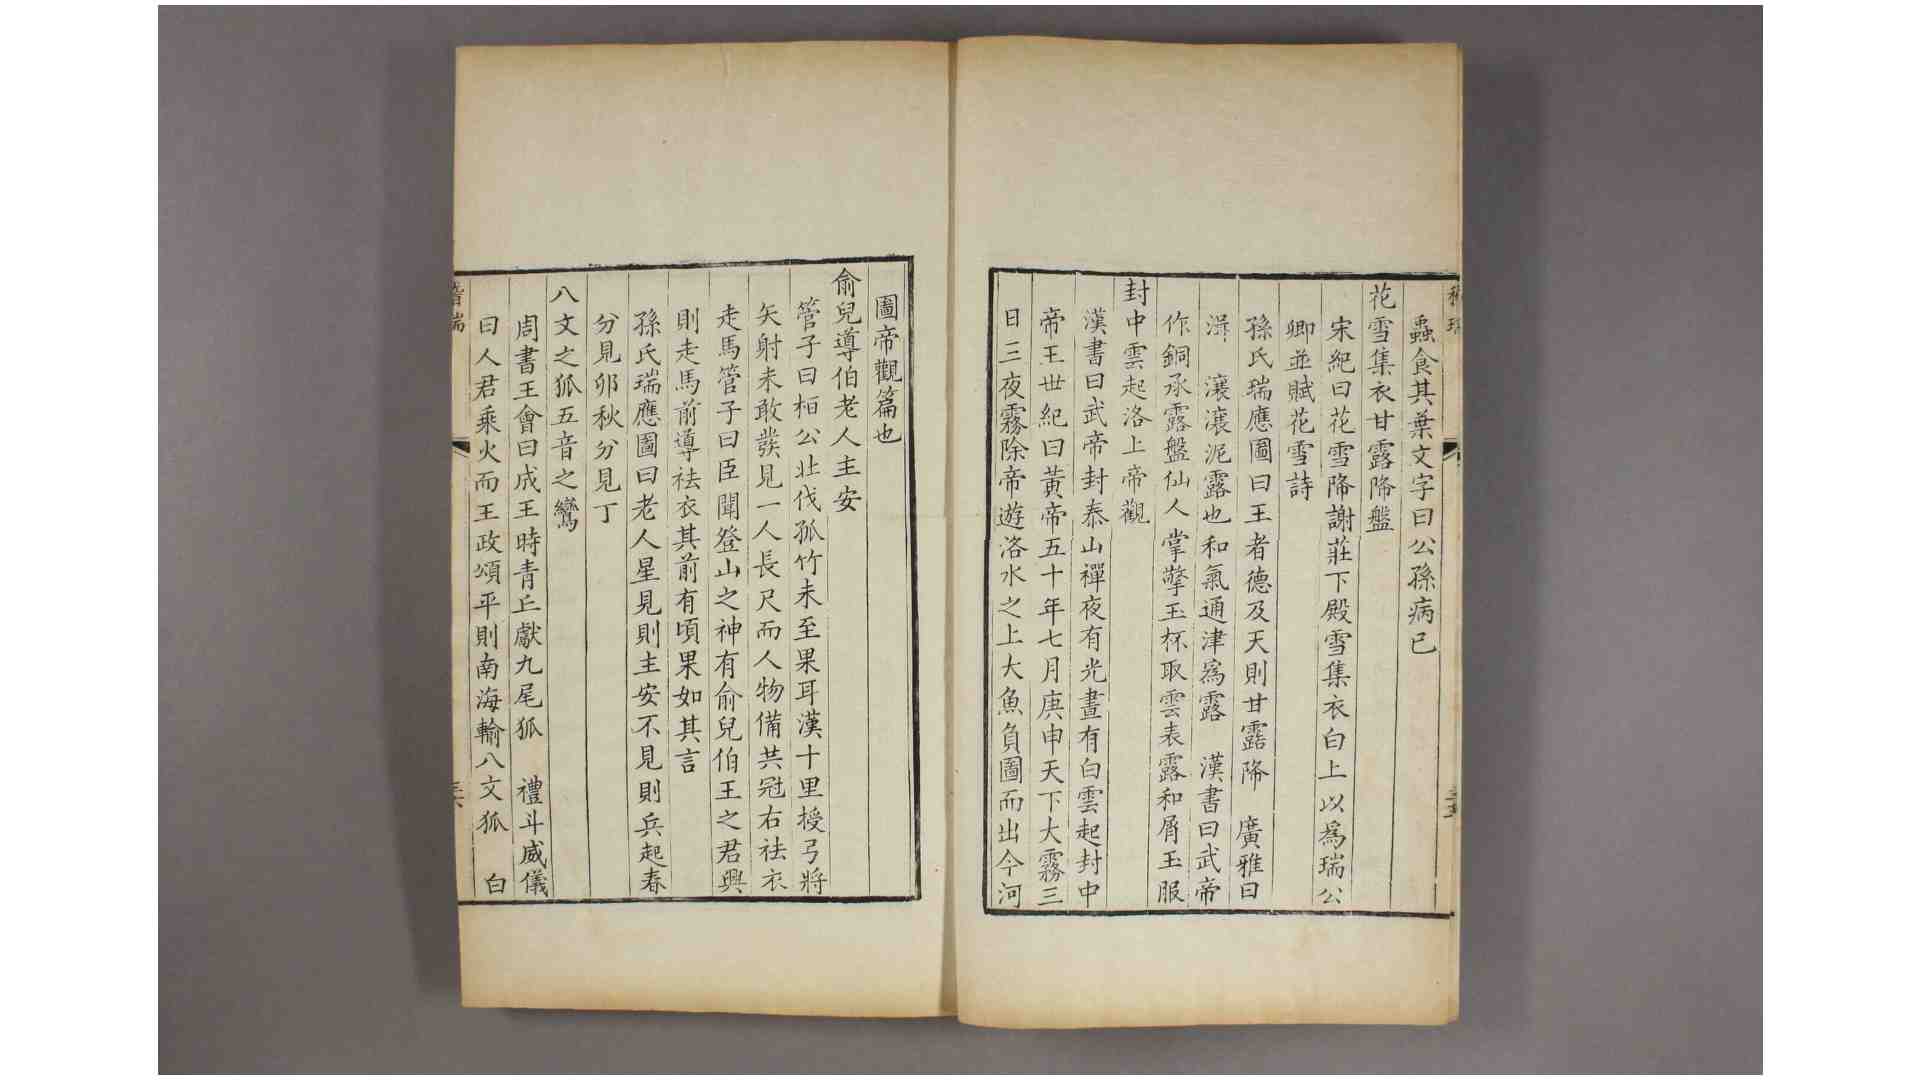 蟲食其葉文字曰公孫病已
花雪集衣甘露降盤
宋紀曰花雪降謝莊下殿雪集衣白上以為瑞公
卿並賦花雪詩
孫氏瑞應圖曰王者德及天則甘露降 廣雅曰
瀼瀼泥露也和氣通津為露 漢書曰武帝
作銅承露盤仙人掌擎玉杯取雲表露和屑玉服
封中雲起洛上帝觀
漢書曰武帝封泰山禪夜有光晝有白雲起封中
帝王世紀曰黃帝五十年七月庚申天下大霧三
日三夜霧除帝遊洛水之上大魚負圖而出今河
圖帝觀篇也
俞兒導伯老人主安
管子曰桓公北伐孤竹未至果耳漢十里授弓將
矢射未敢發見一人長尺而人物備共冠右袪衣
走馬管子曰臣聞登山之神有俞兒伯王之君興
則走馬前導袪衣其前有頃果如其言
孫氏瑞應圖曰老人星見則主安不見則兵起春
分見卯秋分見丁
八文之狐五音之鸞
周書王會曰成王時青丘獻九尾狐 禮斗威儀
曰人君乘火而王政頌平則南海輸八文狐 白